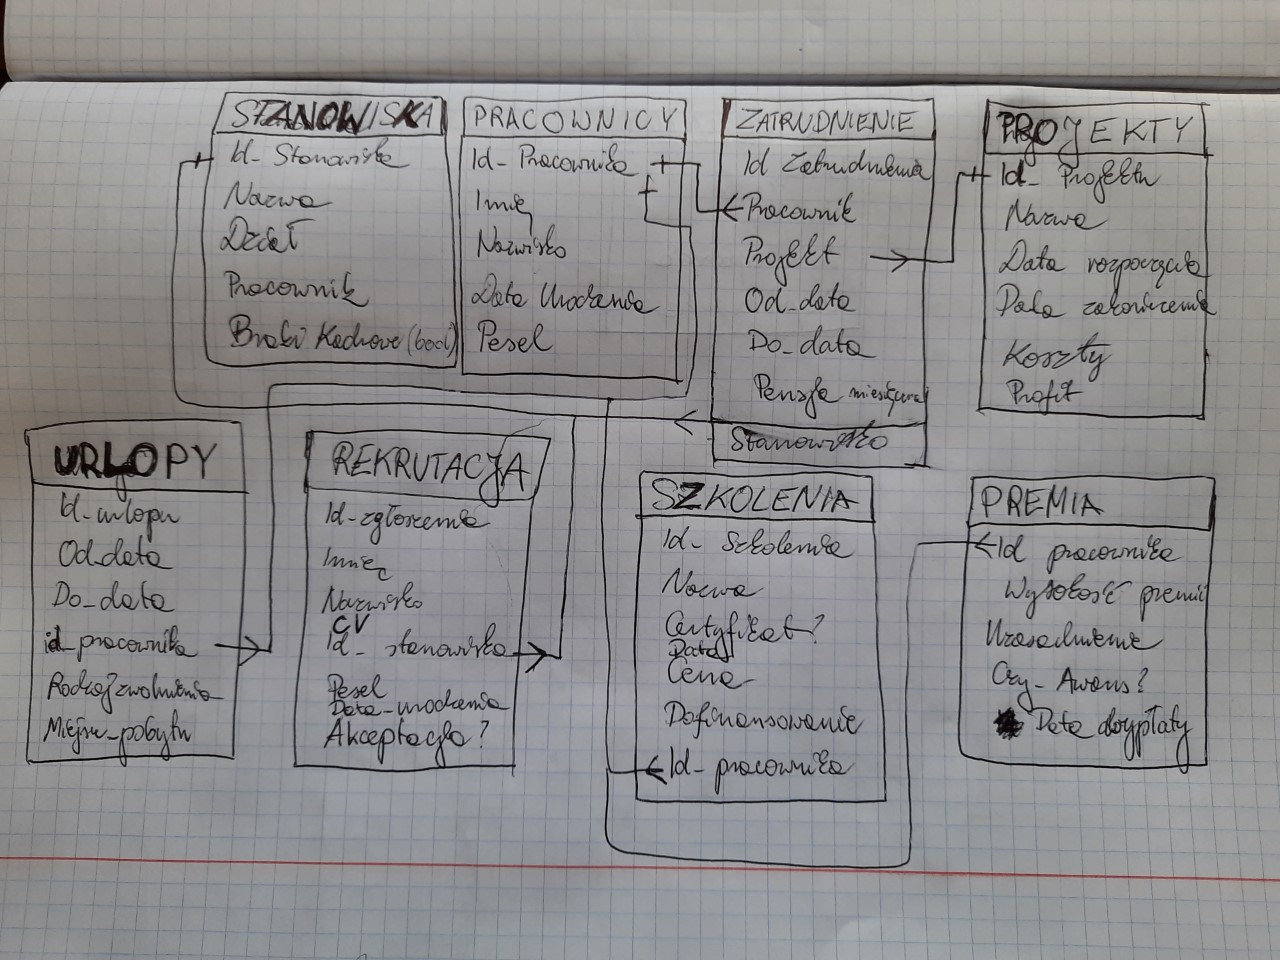 STANOWISKA
Id_Stanowiska
Nazwa
Dział
Pracownik
Braki Kadrowe (bool)
PRACOWNICY
Id_Pracownika
Imię
Nazwisko
Data Urodzenia
Pesel
ZATRUDNIENIE
Id Zatrudnienia
Pracownik
Projekt
Od_data
Do_data
Pensja miesięczna
Stanowisko
PROJEKTY
Id_Projektu
Nazwa
Data rozpoczęcia
Data zakończenia
Koszty
Profit
URLOPY
Id_urlopu
Od_data
Do_data
id_pracownika
Rodzaj zwolnienia
Miejsce_pobytu
REKRUTACJA
Id_zgłoszenia
Imię
Nazwisko
CV
Id_stanowiska
Pesel
Data_urodzenia
Akceptacja?
SZKOLENIA
Id_Szkolenia
Nazwa
Certyfikat?
Data
Cena
Dofinansowanie
Id_pracownika
PREMIA
Id pracownika
Wysokość premii
Uzasadnienie
Czy_Awans?
Data wypłaty